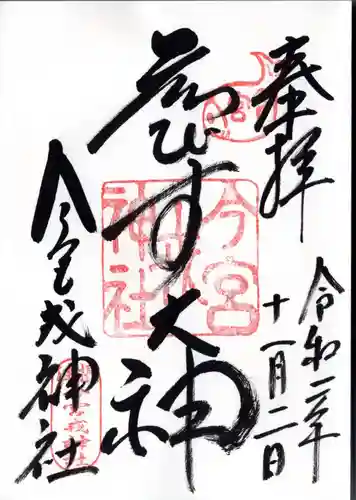 奉拝
令和二年
十一月二日
ゑびす大神
今宮戎神社
今宮戎神社